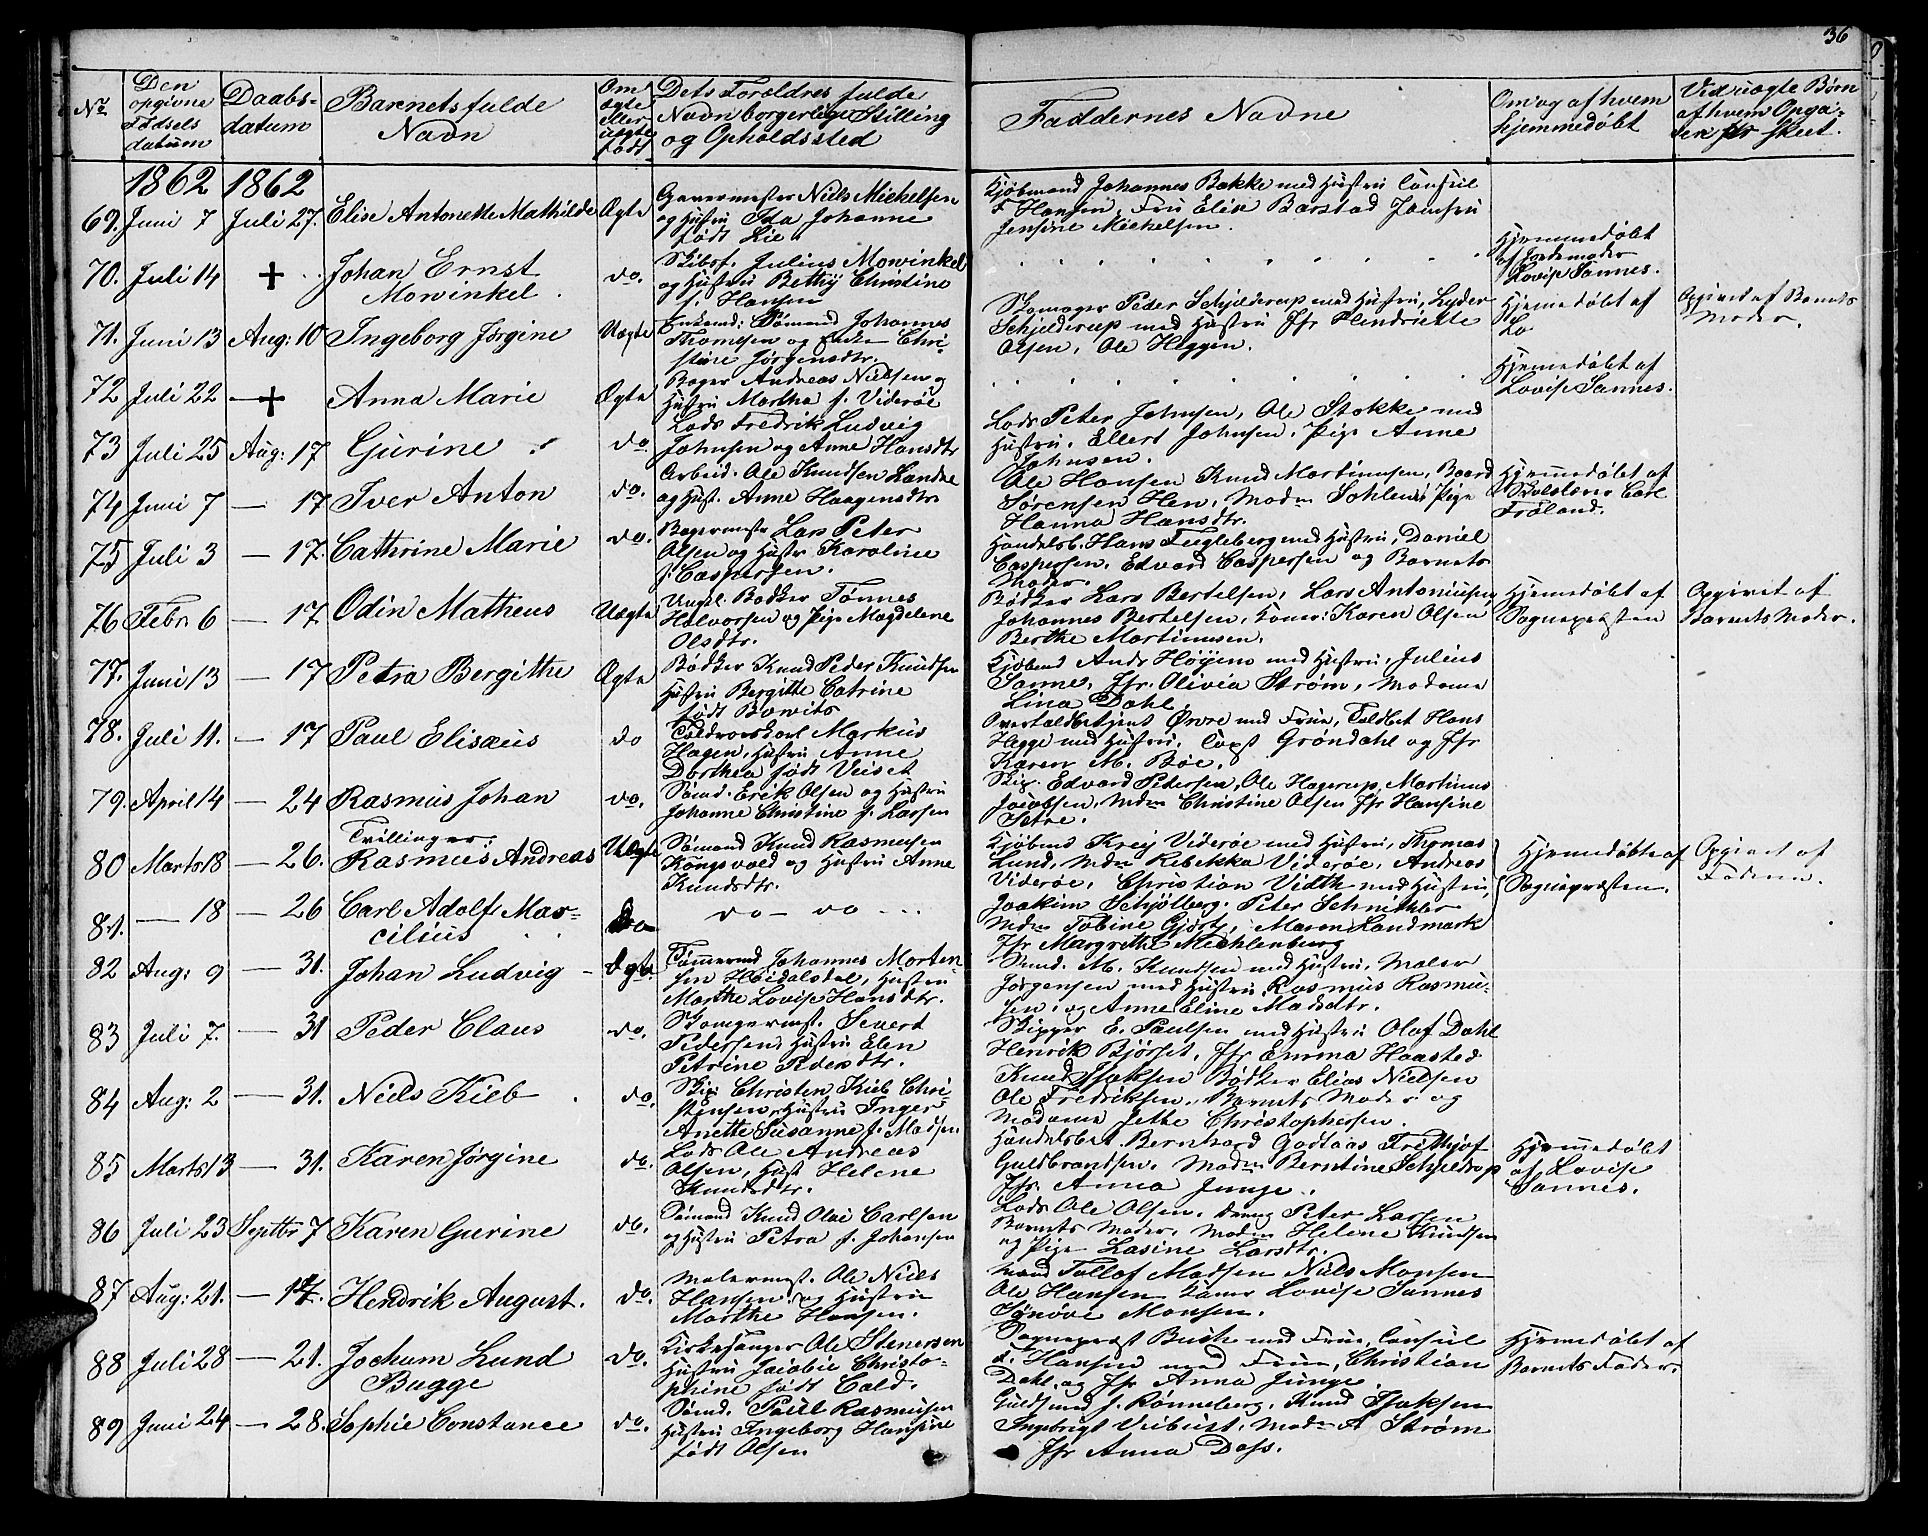 36
No
Den opgivne Fødsels datum
Daabs-datum
Barnets fulde Navn
Om ægte eller uægte født
Dets Forældres fulde Navn borgerlige Stilling og Opholdssted
Faddernes Navne
Om og af hvem hjemmedøbt
Ved uægte Børn af hvem Opga-
ven er skeet.
1862 1862
69. Juni 7 Juli 27. Elise Antonette Mathilde Ægte
Garvermester Niels Michelsen
og Hustru Ida Johanne
født Lie
Kjøbmand Johannes Bakke med Hustru Consul
F Hansen, Fru Elise Barstad Jomfru
Jensine Michelsen.
70. Juli 14 + Johan Ernst
Mowinkel do.
Skibsf. Julius Mowinkel
og Hustru Bethy Christine
f. Hansen
Hjemmedøbt
af Jordemoder
Lovise Sannes.
71. Juni 13 Aug: 10 Ingeborg Jørgine Uægte
Enkemd: Sømand Johannes
Thomesen og Enke Chri-
stine Jørgensdtr.
Skomager Peder Schjelderup med Hustru, Lyder
Schjelderup med Hustru Jfr Hendrikke
Olsen, Ole Heggen.
Hjemmedøbt af
Lo
Opgivet af Barnets
Moder.
72 Juli 22 — + Anna Marie Ægte
Bager Andreas Nielsen og
Hustru Martha f. Viderøe
Hjemmedøbt af
Lovise Sannes.
73 Juli 25 Aug: 17 Gurine do.
Lods Fredrik Ludvig
Johnsen og Anne Hansdtr
Lods Peter Johnsen, Ole Stokke med
Hustru, Ellert Johnsen, Pige Anne
Johnsen.
74 Juni 7 — 17 Iver Anton do.
Arbeid. Ole Knudsen Landre
og Hust. Anne Haagensdtr
Ole Hansen Knud Martinusen, Baard
Sørensen Hen, Madn Sohlem, Pige
Hanna Hansdtr.
Hjemmedøbt af
Skolelærer Carl
Frøland.
75 Juli 3 — 17. Cathrine Marie do.
Bagermstr Lars Peter
Olsen og Hustr Karoline
f. Caspersen.
Handelsb. Hans Fugleberg med Hustru, Daniel
Caspersen, Edvard Caspersen og Barnets
Moder.
76 Febr 6 — 17 Odin Matheus Uægte
Ungk. Bødker Tønnes
Halvorsen og Pige Magdelene
Olsdtr.
Bødker Lars Bertelsen, Lars Antoniusen
Johannes Bertelsen, Koner: Karen Olsen
Berthe Martinusen.
Hjemmedøbt af
Sognepræsten
Opgivet af
Barnets Moder.
77. Juni 13 — 17 Petra Bergithe Ægte
Bødker Knud Peder Knudsen
Hustru Bergitte Catrine
født Bowitz
Kjøbmd Andr Høyem med Hustru, Julius
Sanne, Jfr. Olivia Strøm, Madame
Lina Dahl
78. Juli 11. — 17 Paul Elisæus do
Toldroerskarl Markus
Hagen, Hustru Anne
Dorthea født Veiset
Overtoldbetjent Øvre med Frue, Toldbet Hans
Hegge med Hustru, Capt Grøndahl og Jfr
Karen M. Bøe.
79. April 14 — 24 Rasmus Johan do.
Sømd. Erik Olsen og Hustru
Johanne Christine f. Larsen
Skip. Edvard Petersen, Ole Hagerup, Martinus
Jacobsen, Mdm Christine Olsen Jfr Hansine
Setre.
80 Marts 18 — 26. Tvillinger:
Rasmus Andreas Uægte
Sømand Knud Rasmusen
Kongsvold og Hustru Anne
Knudsdtr.
Kjøbmd Krey Viderøe med Hustru, Thomas
Lund, Mdm Rebekka Viderøe, Andreas
Viderøe, Christian Vidth med Hustru,
Hjemmedøbte af
Sognepræsten.
Opgivet af
Faderen.
81. — 18 — 26 Carl Adolf Mar-
cilius do
do — do —
Joakim Schjølberg. Peter Schnitkler
Mdm Tobine Gjørtz, Maren Landmark
Jfr Margrethe Mechlenburg
82 Aug: 9 — 31. Johan Ludvig — Ægte
Tømmermd Johannes Morten-
sen Heidalsdal, Hustru
Marthe Lovise Hansdtr.
Smed. M. Knudsen med Hustru, Maler
Jørgensen med Hustru Rasmus Rasmu-
sen, og Anne Eline Madsdtr.
83 Juli 7. — 31 Peder Claus do.
Skomagermst. Severt
Pedersen, Hustru Elen
Petrine Pedersdtr.
Skipper E. Paulsen med Hustru Olaf Dahl
Henrik Bjørset, Jfr Emma Haasted
84 Aug: 2 — 31. Niels Kieb do.
Skip Christen Kieb Chri-
stensen, Hustru Inger
Anette Susanne f. Madsen
Knud Isaksen Bødker Elias Nielsen
Ole Fredriksen, Barnets Moder og
Madame Jette Christophersen.
85 Marts 13 — 31. Karen Jørgine do.
Lods Ole Andreas
Olsen, Hust Helene
Knudsdtr.
Handelsbet. Bernhard Godtaas Frithjof
Guldbrandsen, Madm Berntine Schjeldrup
Jfr. Anna Junge.
Hjemmedøbt
af Lovise
Sannes.
86 Juli 23 Septbr 7 Karen Gurine do.
Sømand Knud Olai Carlsen
og Hustru Petra f. Johansen
Lods Ole Olsen, Dreng Peter Larsen
Barnets Moder, Madm Helene Knudsen
og Pige Lasine Larsdtr.
87 Aug: 21. — 14. Hendrik August. do.
Malermst. Ole Niels
Hansen, og Hustru
Marthe Hansen.
Mand Tollof Madsen Niels Monsen
Ole Hansen Koner Lovise Sannes
Synøve Monsen.
88 Juli 28 — 21. Jochum Lund
Bugge do.
Kirkesanger Ole Stenersen
Hustru Jacobie Christo-
phine født Cold.
Sognepræst Buch med Frue, Consul
F. Hansen med Frue, Christian
Dahl, og Jfr Anna Junge.
Hjemmedøbt af
Barnets Fader.
89 Juni 24 — 28. Sophie Constance do.
Sømd. Poul Rasmusen
Hustru Ingeborg Hansine
født Olsen
Guldsmed J. Rønneberg, Knud Isaksen
Ingebrigt Veibust, Madm A Strøm
Jfr Anna Dass.